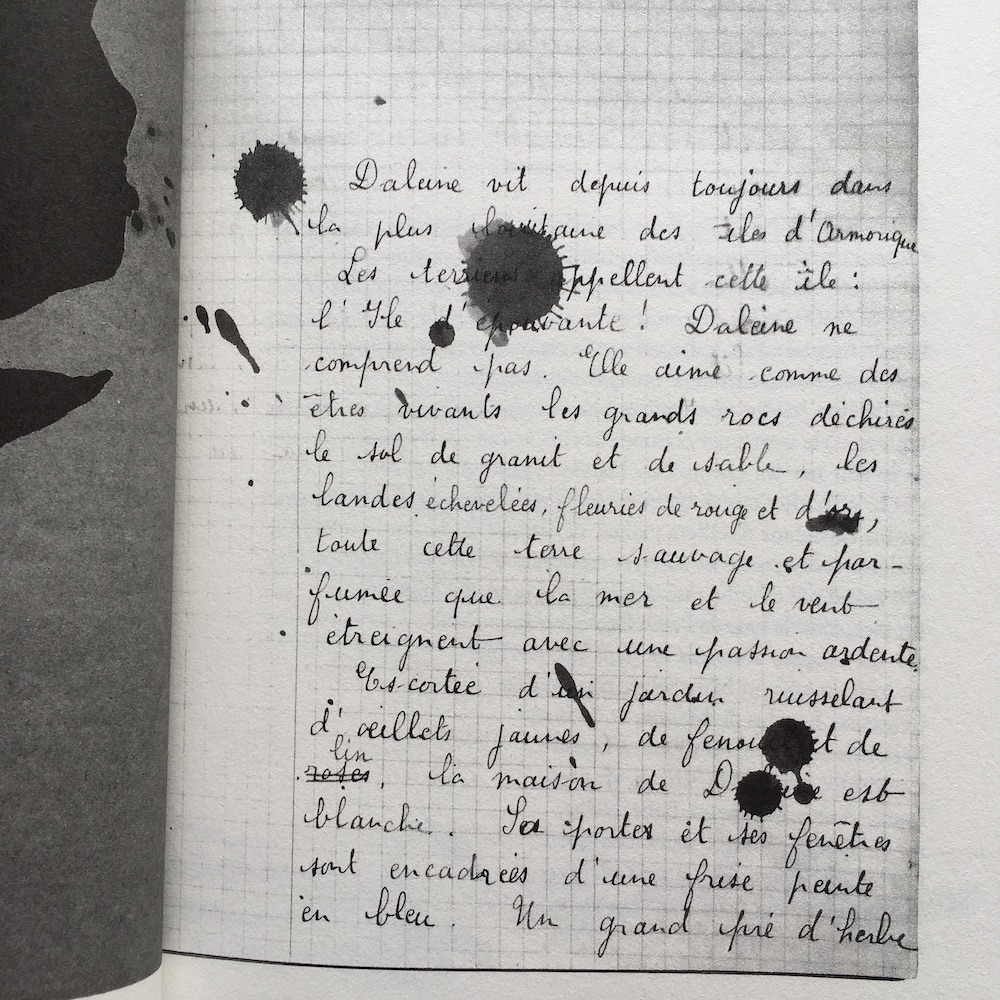 Daleine vit depuis toujours dans
la plus lointaine des îles d'Armorique
Les terriens appellent cette île :
l'Ile d'épouvante ! Daleine ne
comprend pas. Elle aime comme des
êtres vivants les grands rocs déchirés
le sol de granit et de sable, les
landes échevelées, fleuries de rouge et d'ors,
toute cette terre sauvage et par-
fumée que la mer et le vent
étreignent avec une passion ardente.
Escortée d'un jardin ruisselant
d'œillets jaunes, de fenouil et de
lin
roses, la maison de Daleine est
blanche. Sa porte et ses fenêtres
sont encadrées d'une frise peinte
en bleu. Un grand pré d'herbe